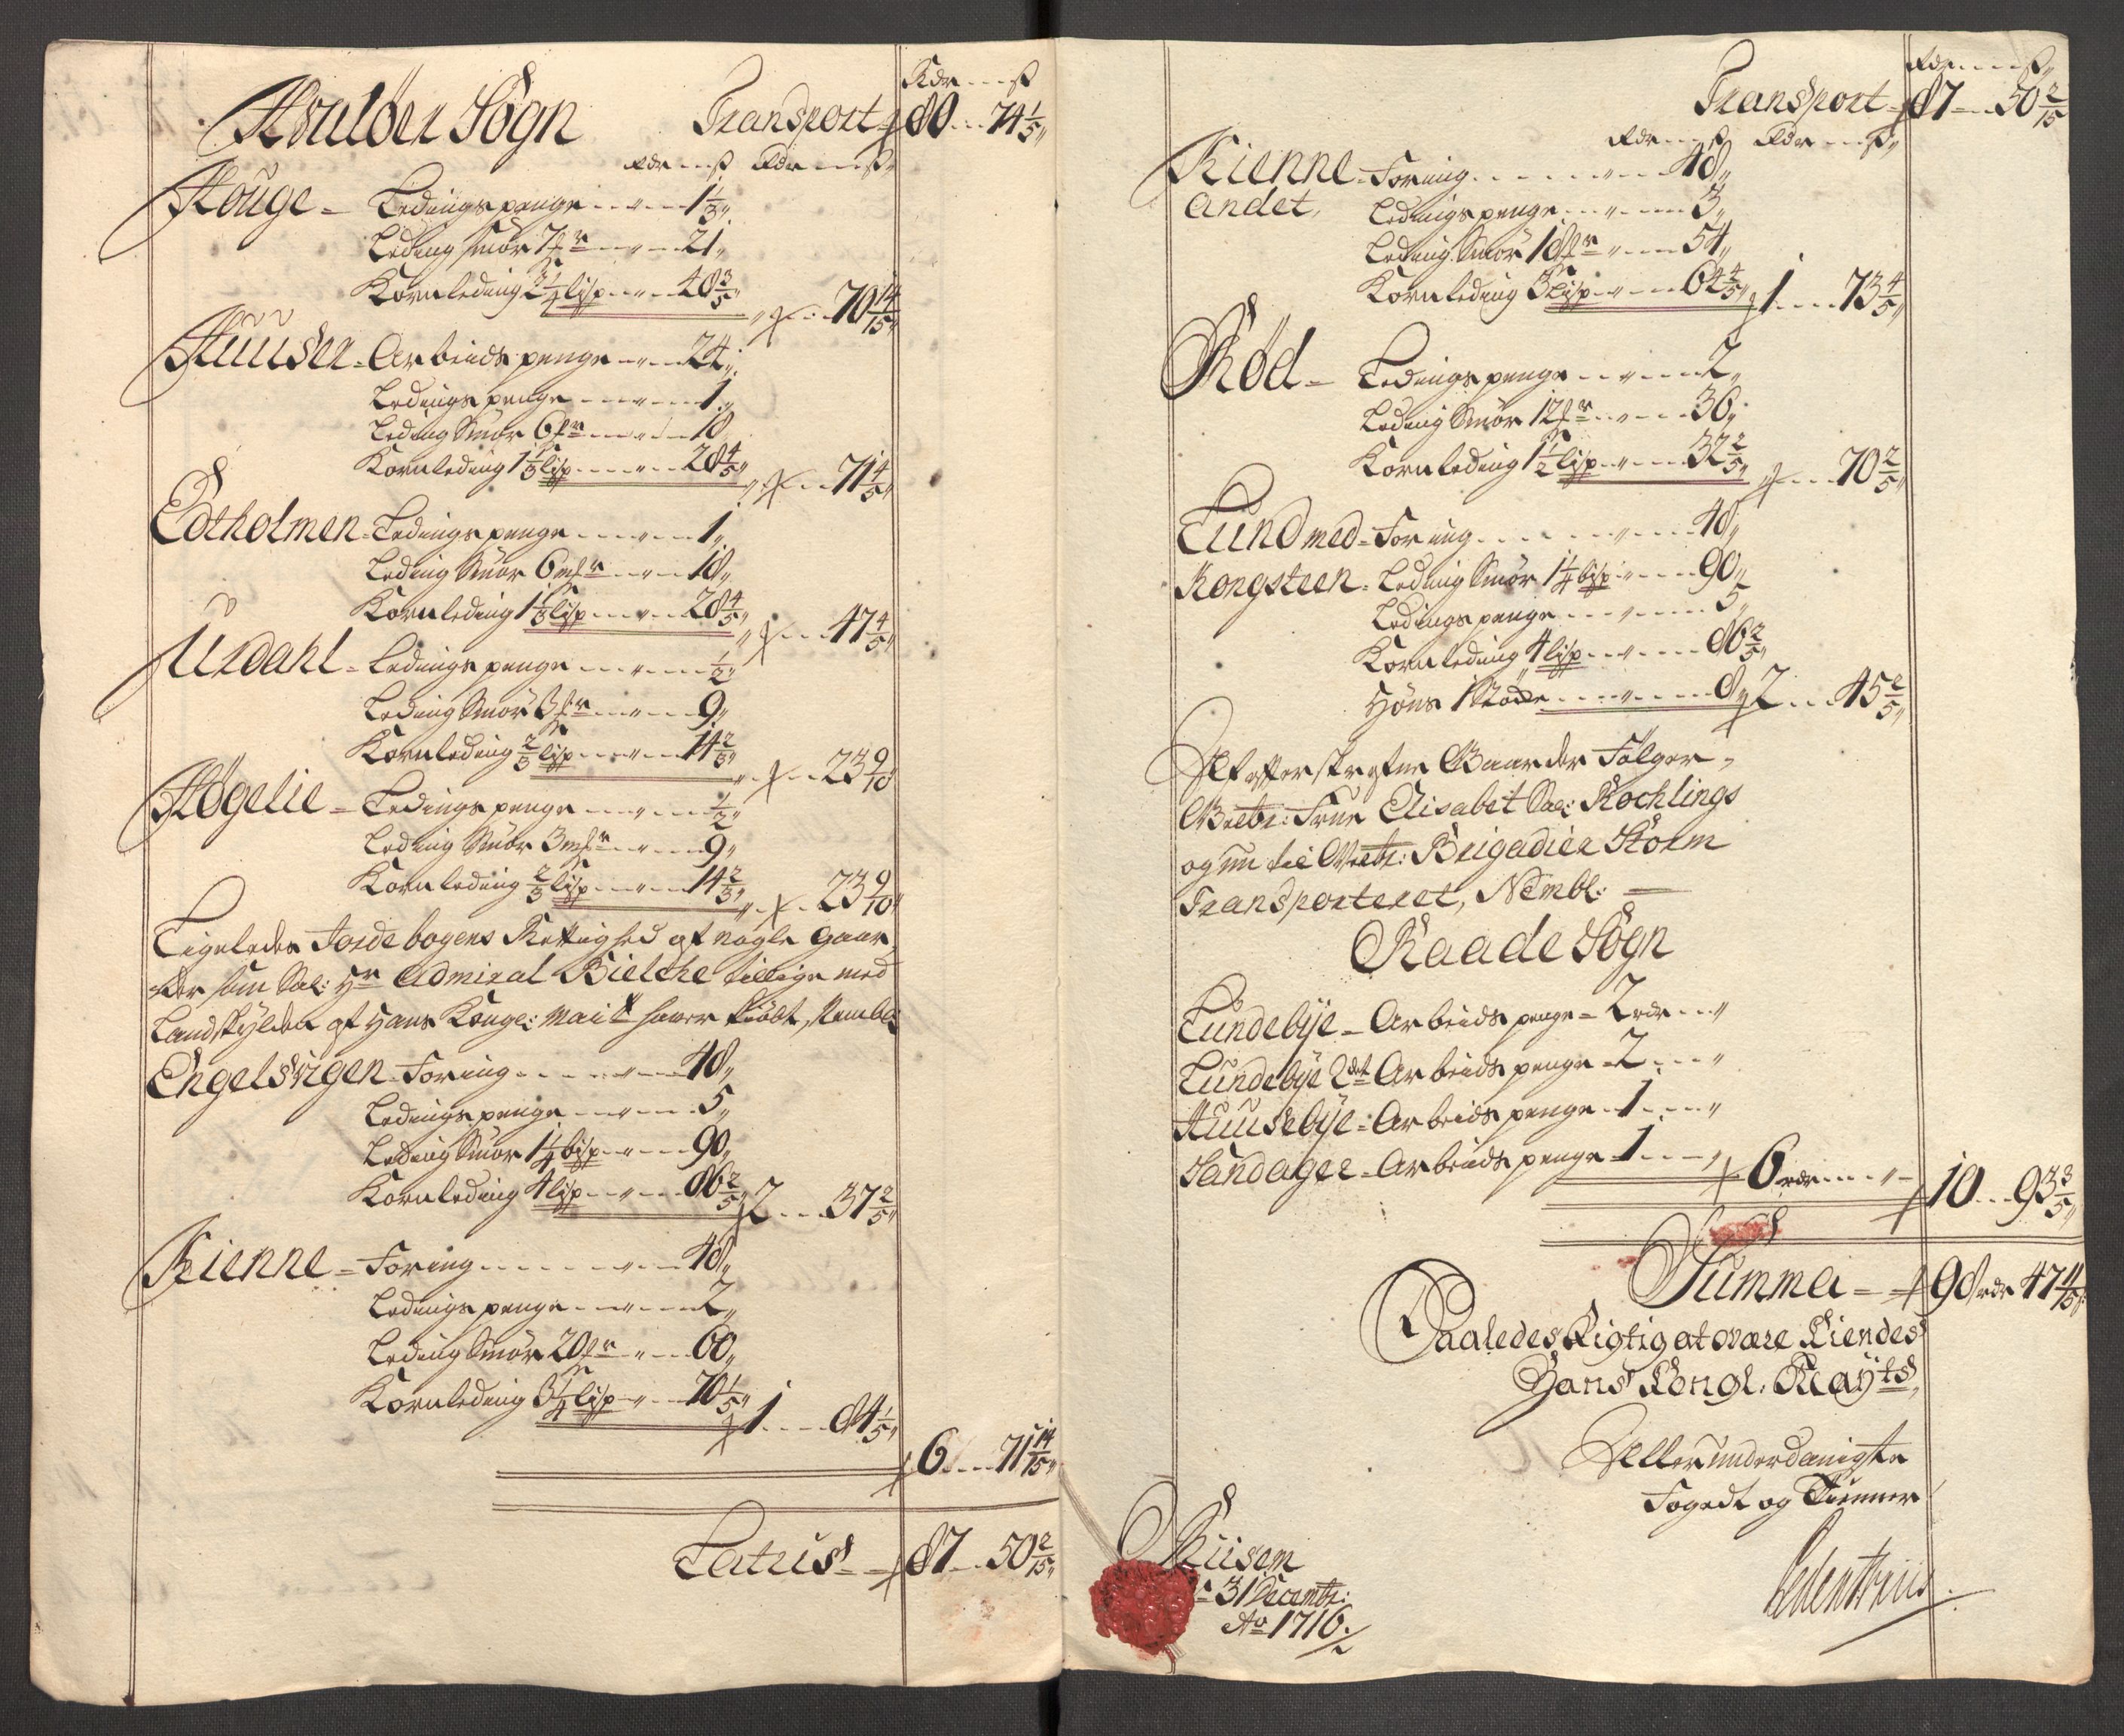 Rdr --- ß
Hvaløer Sogn Transport - 80 --- 74 1/5
Rdr --- ß Rdr --- ß
Houge - Ledingspenge --- 1 1/3
Leding Smør 7 --- 21
Kornleding 2 1/4 lisp --- 48 3/5 --- 70 14/15
Huuser - Arbeidspenge --- 24
Ledingspenge --- 1
Leding Smør 6 --- 18
Kornleding 1 1/3 lisp --- 28 4/5 --- 71 4/5
Edholmen - Ledingspenge --- 1
Leding Smør 6 --- 18
Kornleding 1 1/3 lisp --- 28 4/5 --- 47 4/5
Urdahl - Ledingspenge --- 1/2
Leding Smør 3 --- 9
Kornleding 2/3 lisp --- 14 2/3 --- 23 9/10
Høgelie - Ledingspenge --- 1/2
Leding Smør 3 --- 9
Kornleding 2/3 lisp --- 14 2/3 --- 23 9/10
Ligeledes Jordebogens Rettighed af nogle Gaar-
der som Sal: Hr Admiral Bielche tillige med
Landskylden af Hans Konge: Mait hawer kiøbt, Nembl:
Engelsvigen - Foring --- 48
Ledingspenge --- 5
Leding Smør 1 1/4 bisp --- 90
Kornleding 4 lisp --- 86 2/5 - 2 --- 37 2/5
Kienne - Foring --- 48
Ledingspenge --- 2
Leding Smør 20 --- 60
Kornleding 3 1/4 lisp --- 70 1/5 - 1 --- 84 1/5
6 --- 71 14/15
Latus - 87 --- 50 2/15
Rdr --- ß
Transport - 87 --- 50 2/15
Rdr --- ß Rdr --- ß
Kienne - Foring --- 48
andet, Ledingspenge --- 3
Leding Smør 18 --- 54
Kornleding 3 lisp --- 64 4/5 - 1 --- 73 4/5
Rød - Ledingspenge --- 2
Leding Smør 12 --- 36
Kornleding 1 1/2 lisp --- 32 2/5 --- 70 2/5
Lund med - Foring --- 48
Kongsteen - Leding Smør 1 1/4 bisp --- 90
Ledingspenge --- 5
Kornleding 4 lisp --- 86 2/5
Høns 1 Støde --- 8 - 2 --- 45 2/5
Af efterskrefne Gaarder Følger
Welb: Frue Elisabet Sal: Kochlings
og nu til Welb: Brigadier Storm
Transporteret, Nembl:
Raade Sogn
Lundebÿe - Arbeidspenge - 2 rdr ---
Lundebÿe 2det Arbeidspenge - 2 ---
Huusebÿe - Arbeidspenge - 1 ---
Sandager - Arbeidspenge - 1 --- 6 rdr --- 10 --- 93 3/5
Summa - 98 rdr 47 11/15
Saaledes Rigtig at være Kiendes
Hans Kongl. Mayts
Allerunderdanigste
Fogedt og Tienner
Husem
31 Decembr:
Ao 1716.